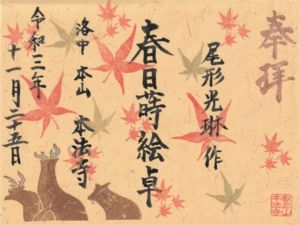 奉拝
尾形光琳作
春日蒔絵卓
洛中 本山 本法寺
令和三年
十一月二十五日